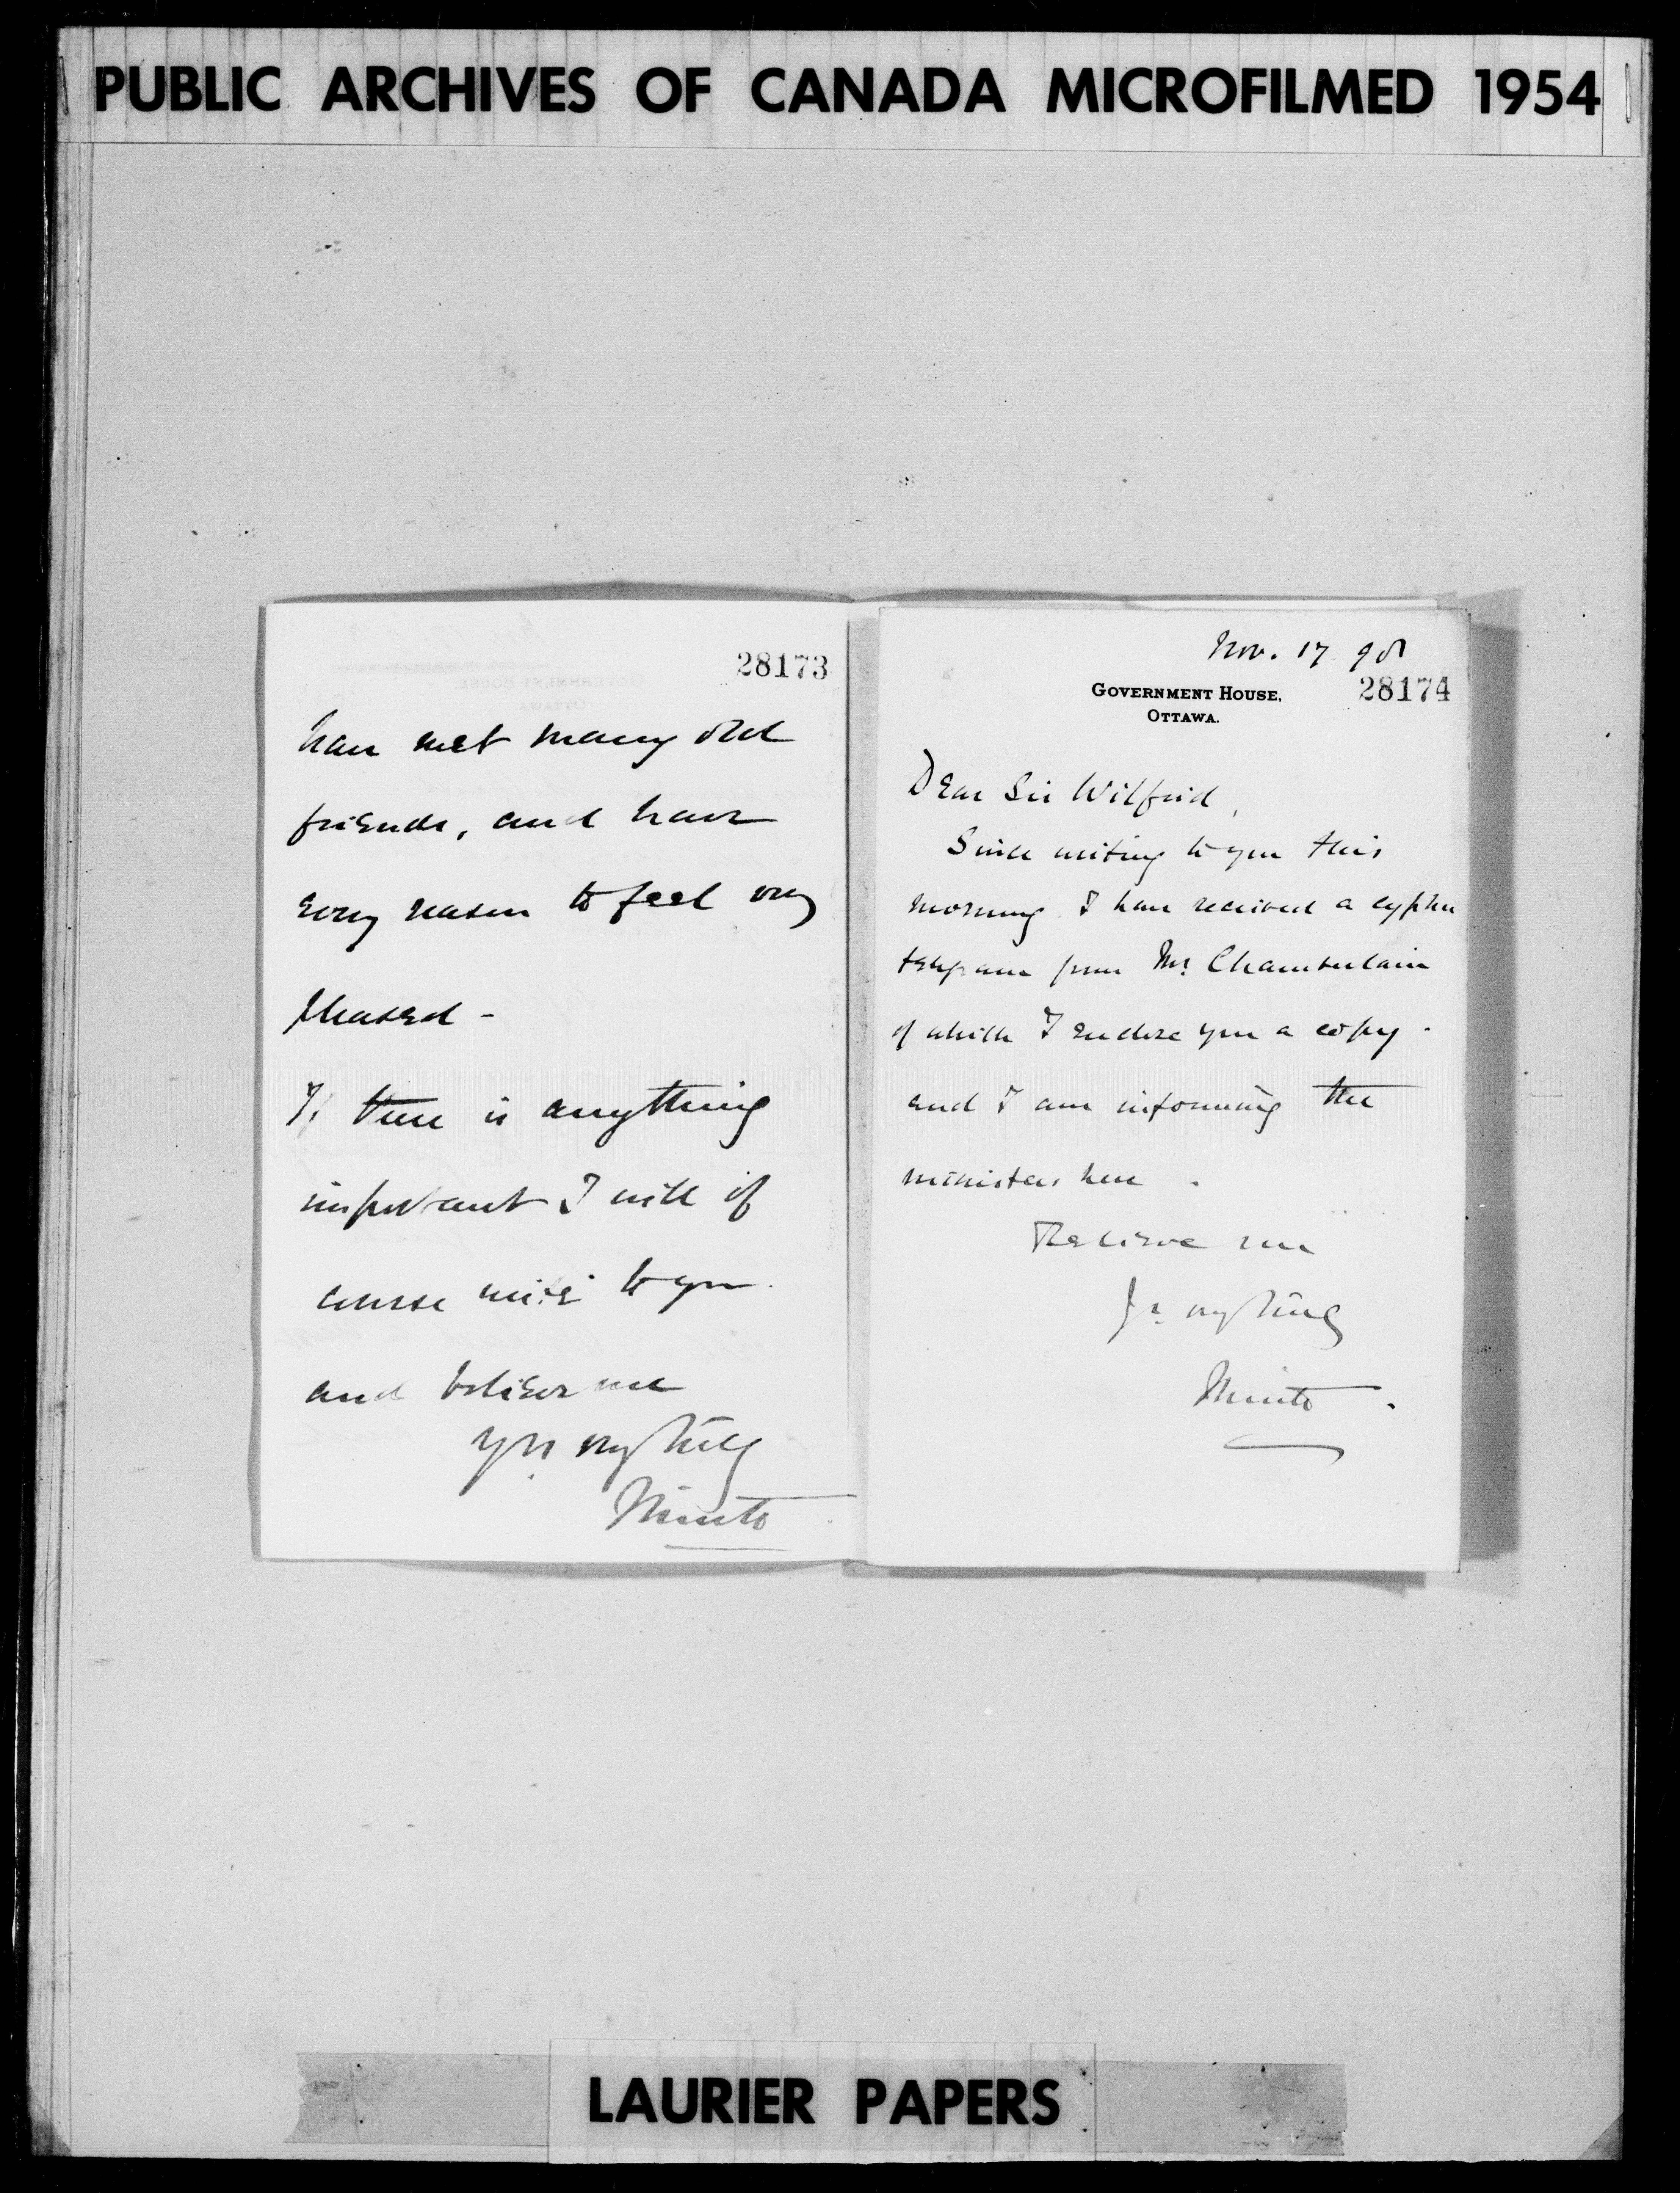 PUBLIC ARCHIVES OF CANADA MICROFILMED 1954
28173
have met many old
friends, and have
every reason to feel very
pleased -
If there is anything
important I will of
course write to you.
and believe me
Yrs. very truly
Minto
Nov. 17 98
28174
GOVERNMENT HOUSE,
OTTAWA.
Dear Sir Wilfrid,
Since writing to you this
morning I have received a cypher
telegram from Mr. Chamberlain
of which I enclose you a copy -
and I am informing the
ministers here .
Believe me
Yrs. very truly
Minto .
LAURIER PAPERS